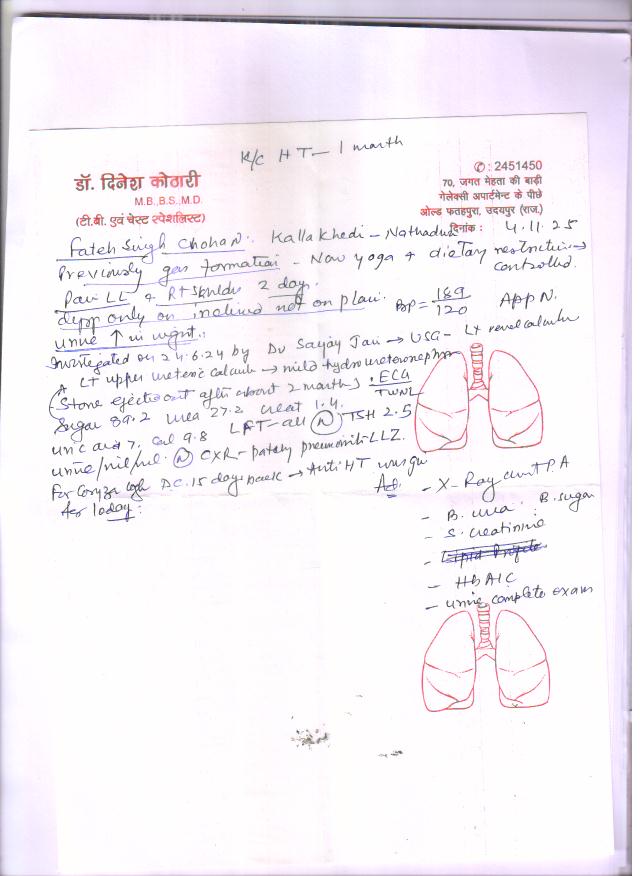 K/C HT - 1 month
डॉ. दिनेश कोठारी
M.B.,B.S.,M.D.
(टी.बी. एवं चेस्ट स्पेशलिस्ट)
✆ : 2451450
70, जगत मेहता की बाड़ी
गेलेक्सी अपार्टमेन्ट के पीछे
ओल्ड फतहपुरा, उदयपुर (राज.)
दिनांक : 4.11.25
Fateh Singh Chohan. Kallakhedi - Nathadu
Previously gas formation - Now yoga + dietary restriction
controlled.
Pain LL + Rt 2 day.
only on inclined not on plain. BP = 189/120 App N.
urine ↑ in night.
Investigated on 24.6.24 by Dr Sanjay Jain → USG - Lt renal calculi
Lt upper ureteric calculi → mild hydroureteronephro
(Stone ejected out after about 2 months) . ECG
TWNL
Sugar 89.2 urea 27.2 creat 1.4.
uric acid 7. cal 9.8 LFT - all (N) TSH 2.5
urine/nil/nil. (N) CXR - patchy pneumonitis LLZ.
For Coryza D.C. 15 days back → Anti HT
Ad. - X-Ray chest P.A
- B. urea B. sugar
- S. creatinine
- Lipid Profile
- HbA1C
- urine complete exam